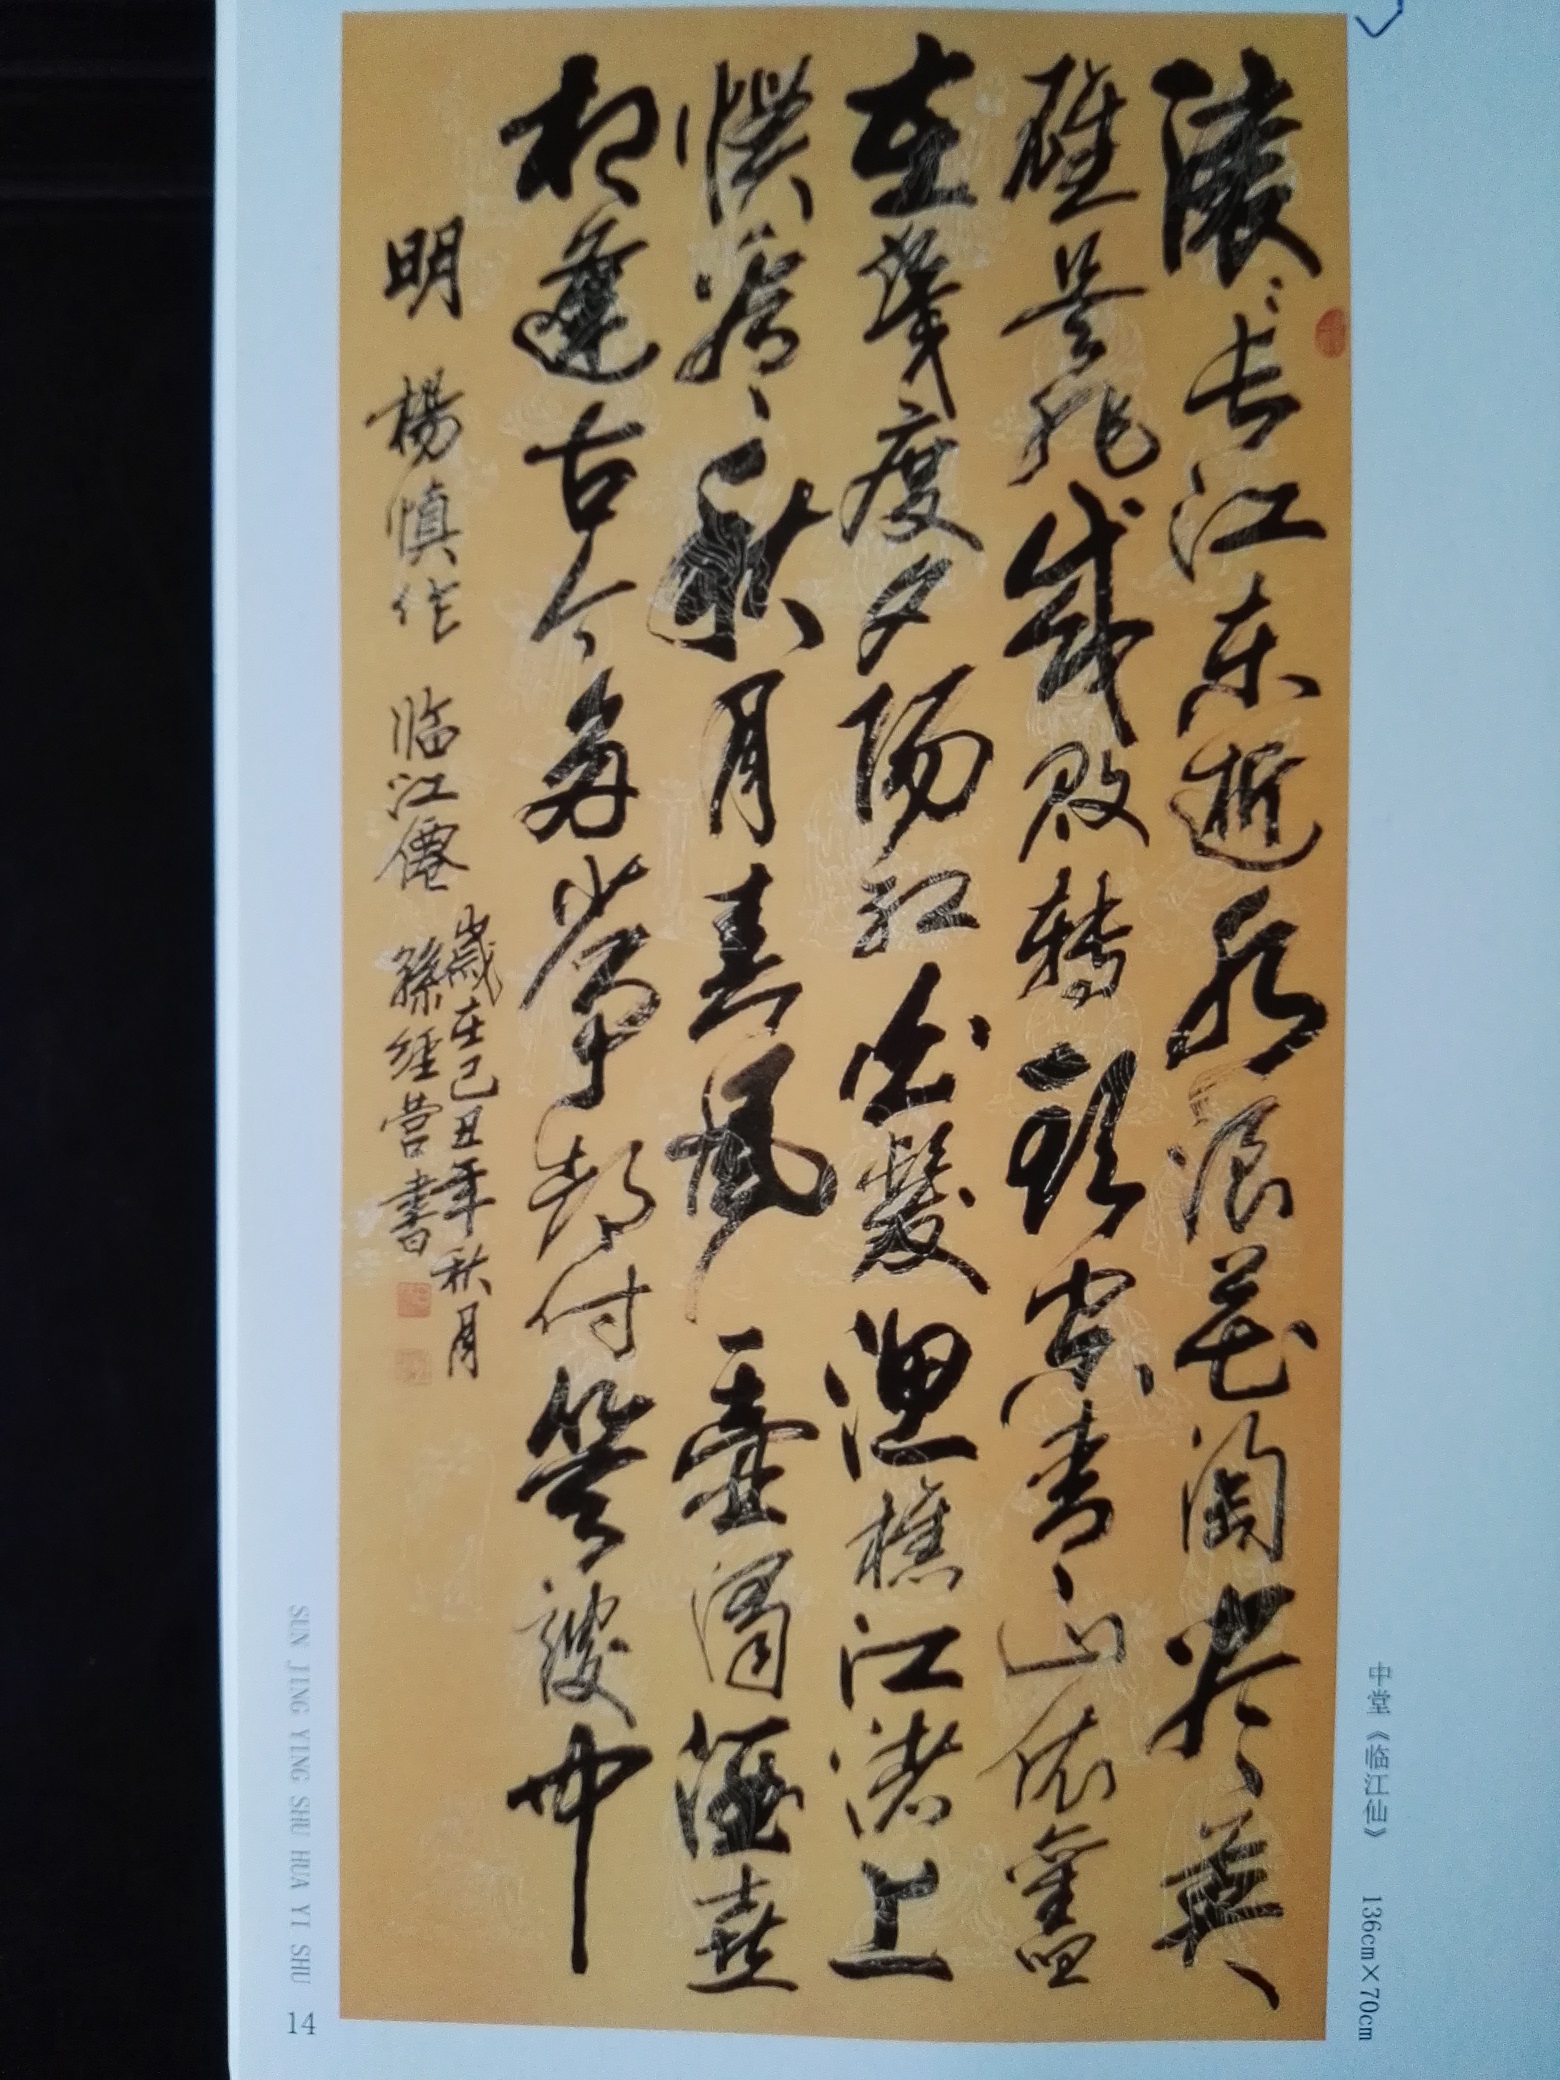 滚滚长江东逝水浪花淘尽英
雄是非成败转头空青山依舊
在幾度夕陽红白髮渔樵江渚上
惯看秋月春風一壺濁酒喜
相逢古今多少事都付笑談中
明 楊慎作 临江僊
歲在己丑年秋月
孫經营書
中堂《临江仙》 136cm×70cm
SUN JING YING SHU HUA YI SHU
14